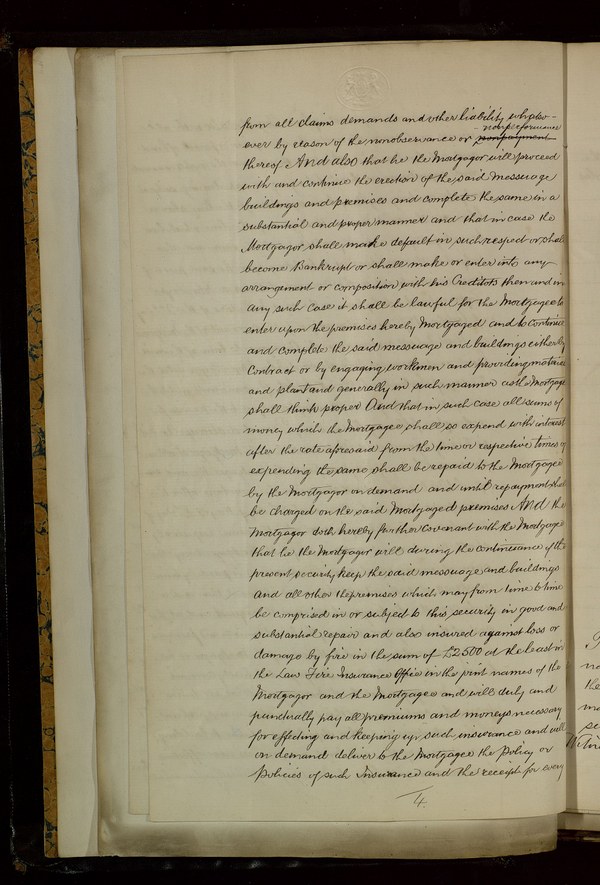 from all claims demands and other liability whatso-
nonperformance
ever by reason of the nonobservance or nonpayment
thereof And also that he the Mortgagor will proceed
with and continue the erection of the said messuage
buildings and premises and complete the same in a
substantial and proper manner and that in case the
Mortgagor shall make default in such respect or shall
become Bankrupt or shall make or enter into any
arrangement or composition with his Creditors then and in
any such case it shall be lawful for the Mortgagee to
enter upon the premises hereby Mortgaged and to continue
and complete the said messuage and buildings either by
Contract or by engaging workmen and providing material
and plant and generally in such manner as the Mortgagee
shall think proper And that in such case all sums of
money which the Mortgagee shall so expend with interest
after the rate aforesaid from the time or respective times of
expending the same shall be repaid to the Mortgagee
by the Mortgagor on demand and until repayment shall
be charged on the said Mortgaged premises And the
Mortgagor doth hereby further Covenant with the Mortgagee
that he the Mortgagor will during the continuance of the
present security keep the said messuage and buildings
and all other the premises which may from time to time
be comprised in or subject to this security in good and
substantial repair and also insured against loss or
damage by fire in the sum of £2500 at the least in
the Law Fire Insurance Office in the joint names of the
Mortgagor and the Mortgagee and will duly and
punctually pay all premiums and moneys necessary
for effecting and keeping up such insurance and will
on demand deliver to the Mortgagee the Policy or
Policies of such Insurance and the receipt for every
4